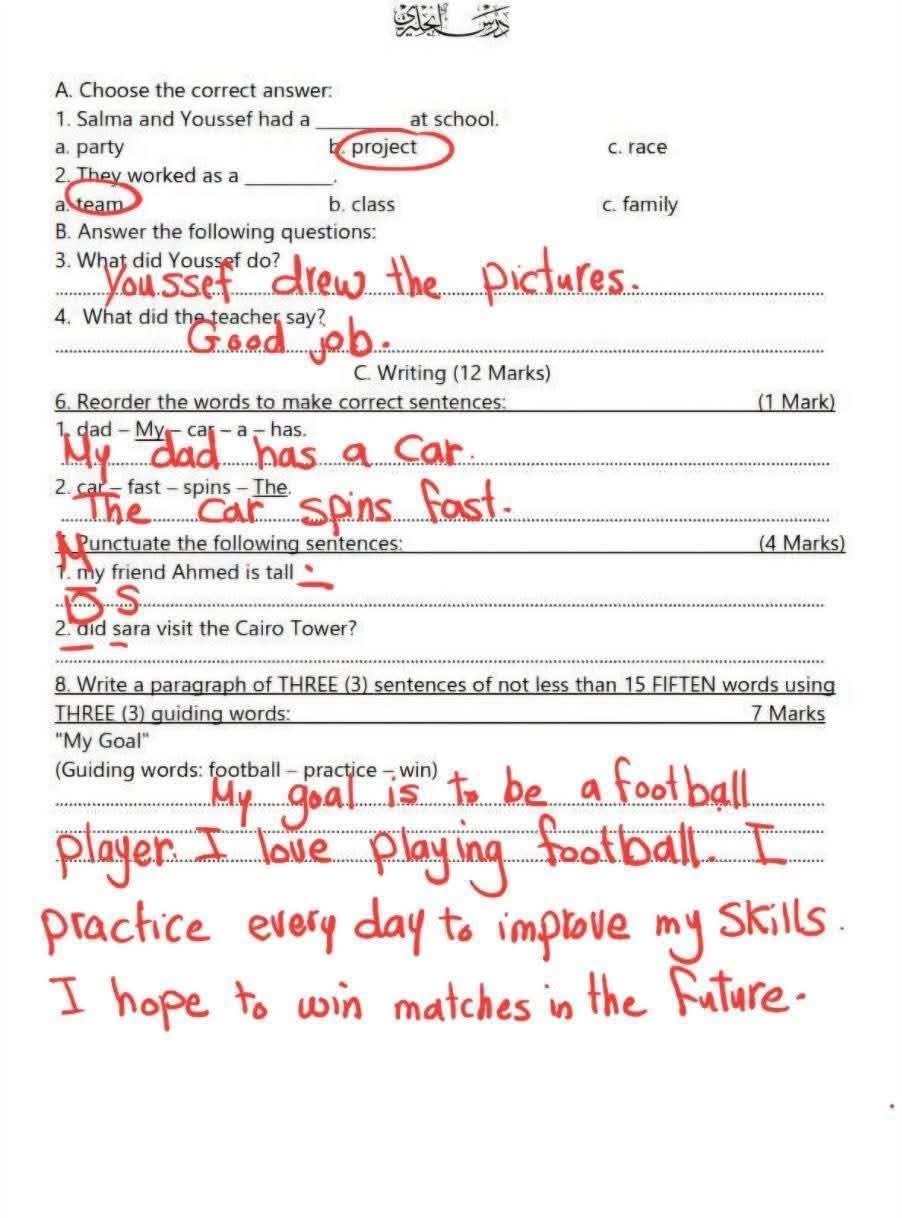 درس انجليزي
A. Choose the correct answer:
1. Salma and Youssef had a ________ at school.
a. party b. project c. race
2. They worked as a ________.
a. team b. class c. family
B. Answer the following questions:
3. What did Youssef do?
Youssef drew the pictures.
4. What did the teacher say?
Good job.
C. Writing (12 Marks)
6. Reorder the words to make correct sentences: (1 Mark)
1. dad – My – car – a – has.
My dad has a car.
2. car – fast – spins – The.
The car spins fast.
Punctuate the following sentences: (4 Marks)
M
1. my friend Ahmed is tall .
D S
2. did sara visit the Cairo Tower?
8. Write a paragraph of THREE (3) sentences of not less than 15 FIFTEN words using
THREE (3) guiding words: 7 Marks
"My Goal"
(Guiding words: football – practice – win)
My goal is to be a football
player. I love playing football. I
practice every day to improve my skills.
I hope to win matches in the future.